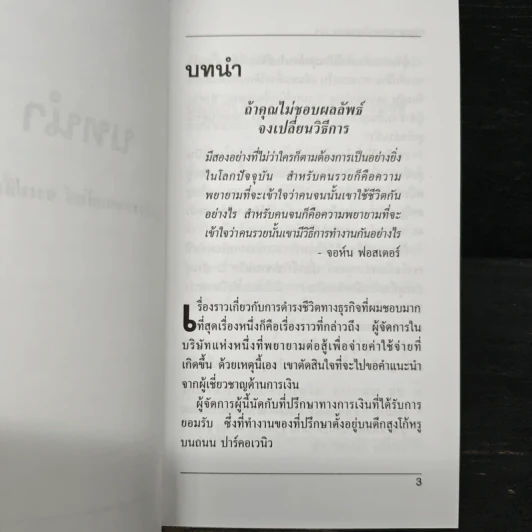 บทนำ
ถ้าคุณไม่ชอบผลลัพธ์
จงเปลี่ยนวิธีการ
มีสองอย่างที่ไม่ว่าใครก็ตามต้องการเป็นอย่างยิ่ง
ในโลกปัจจุบัน สำหรับคนรวยก็คือความ
พยายามที่จะเข้าใจว่าคนจนนั้นเขาใช้ชีวิตกัน
อย่างไร สำหรับคนจนก็คือความพยายามที่จะ
เข้าใจว่าคนรวยนั้นเขามีวิธีการทำงานกันอย่างไร
- จอห์น ฟอสเตอร์
เรื่องราวเกี่ยวกับการดำรงชีวิตทางธุรกิจที่ผมชอบมาก
ที่สุดเรื่องหนึ่งก็คือเรื่องราวที่กล่าวถึง ผู้จัดการใน
บริษัทแห่งหนึ่งที่พยายามต่อสู้เพื่อจ่ายค่าใช้จ่ายที่
เกิดขึ้น ด้วยเหตุนี้เอง เขาตัดสินใจที่จะไปขอคำแนะนำ
จากผู้เชี่ยวชาญด้านการเงิน
ผู้จัดการผู้นี้นัดกับที่ปรึกษาทางการเงินที่ได้รับการ
ยอมรับ ซึ่งที่ทำงานของที่ปรึกษาตั้งอยู่บนตึกสูงโก้หรู
บนถนน ปาร์คอเวนิว
3